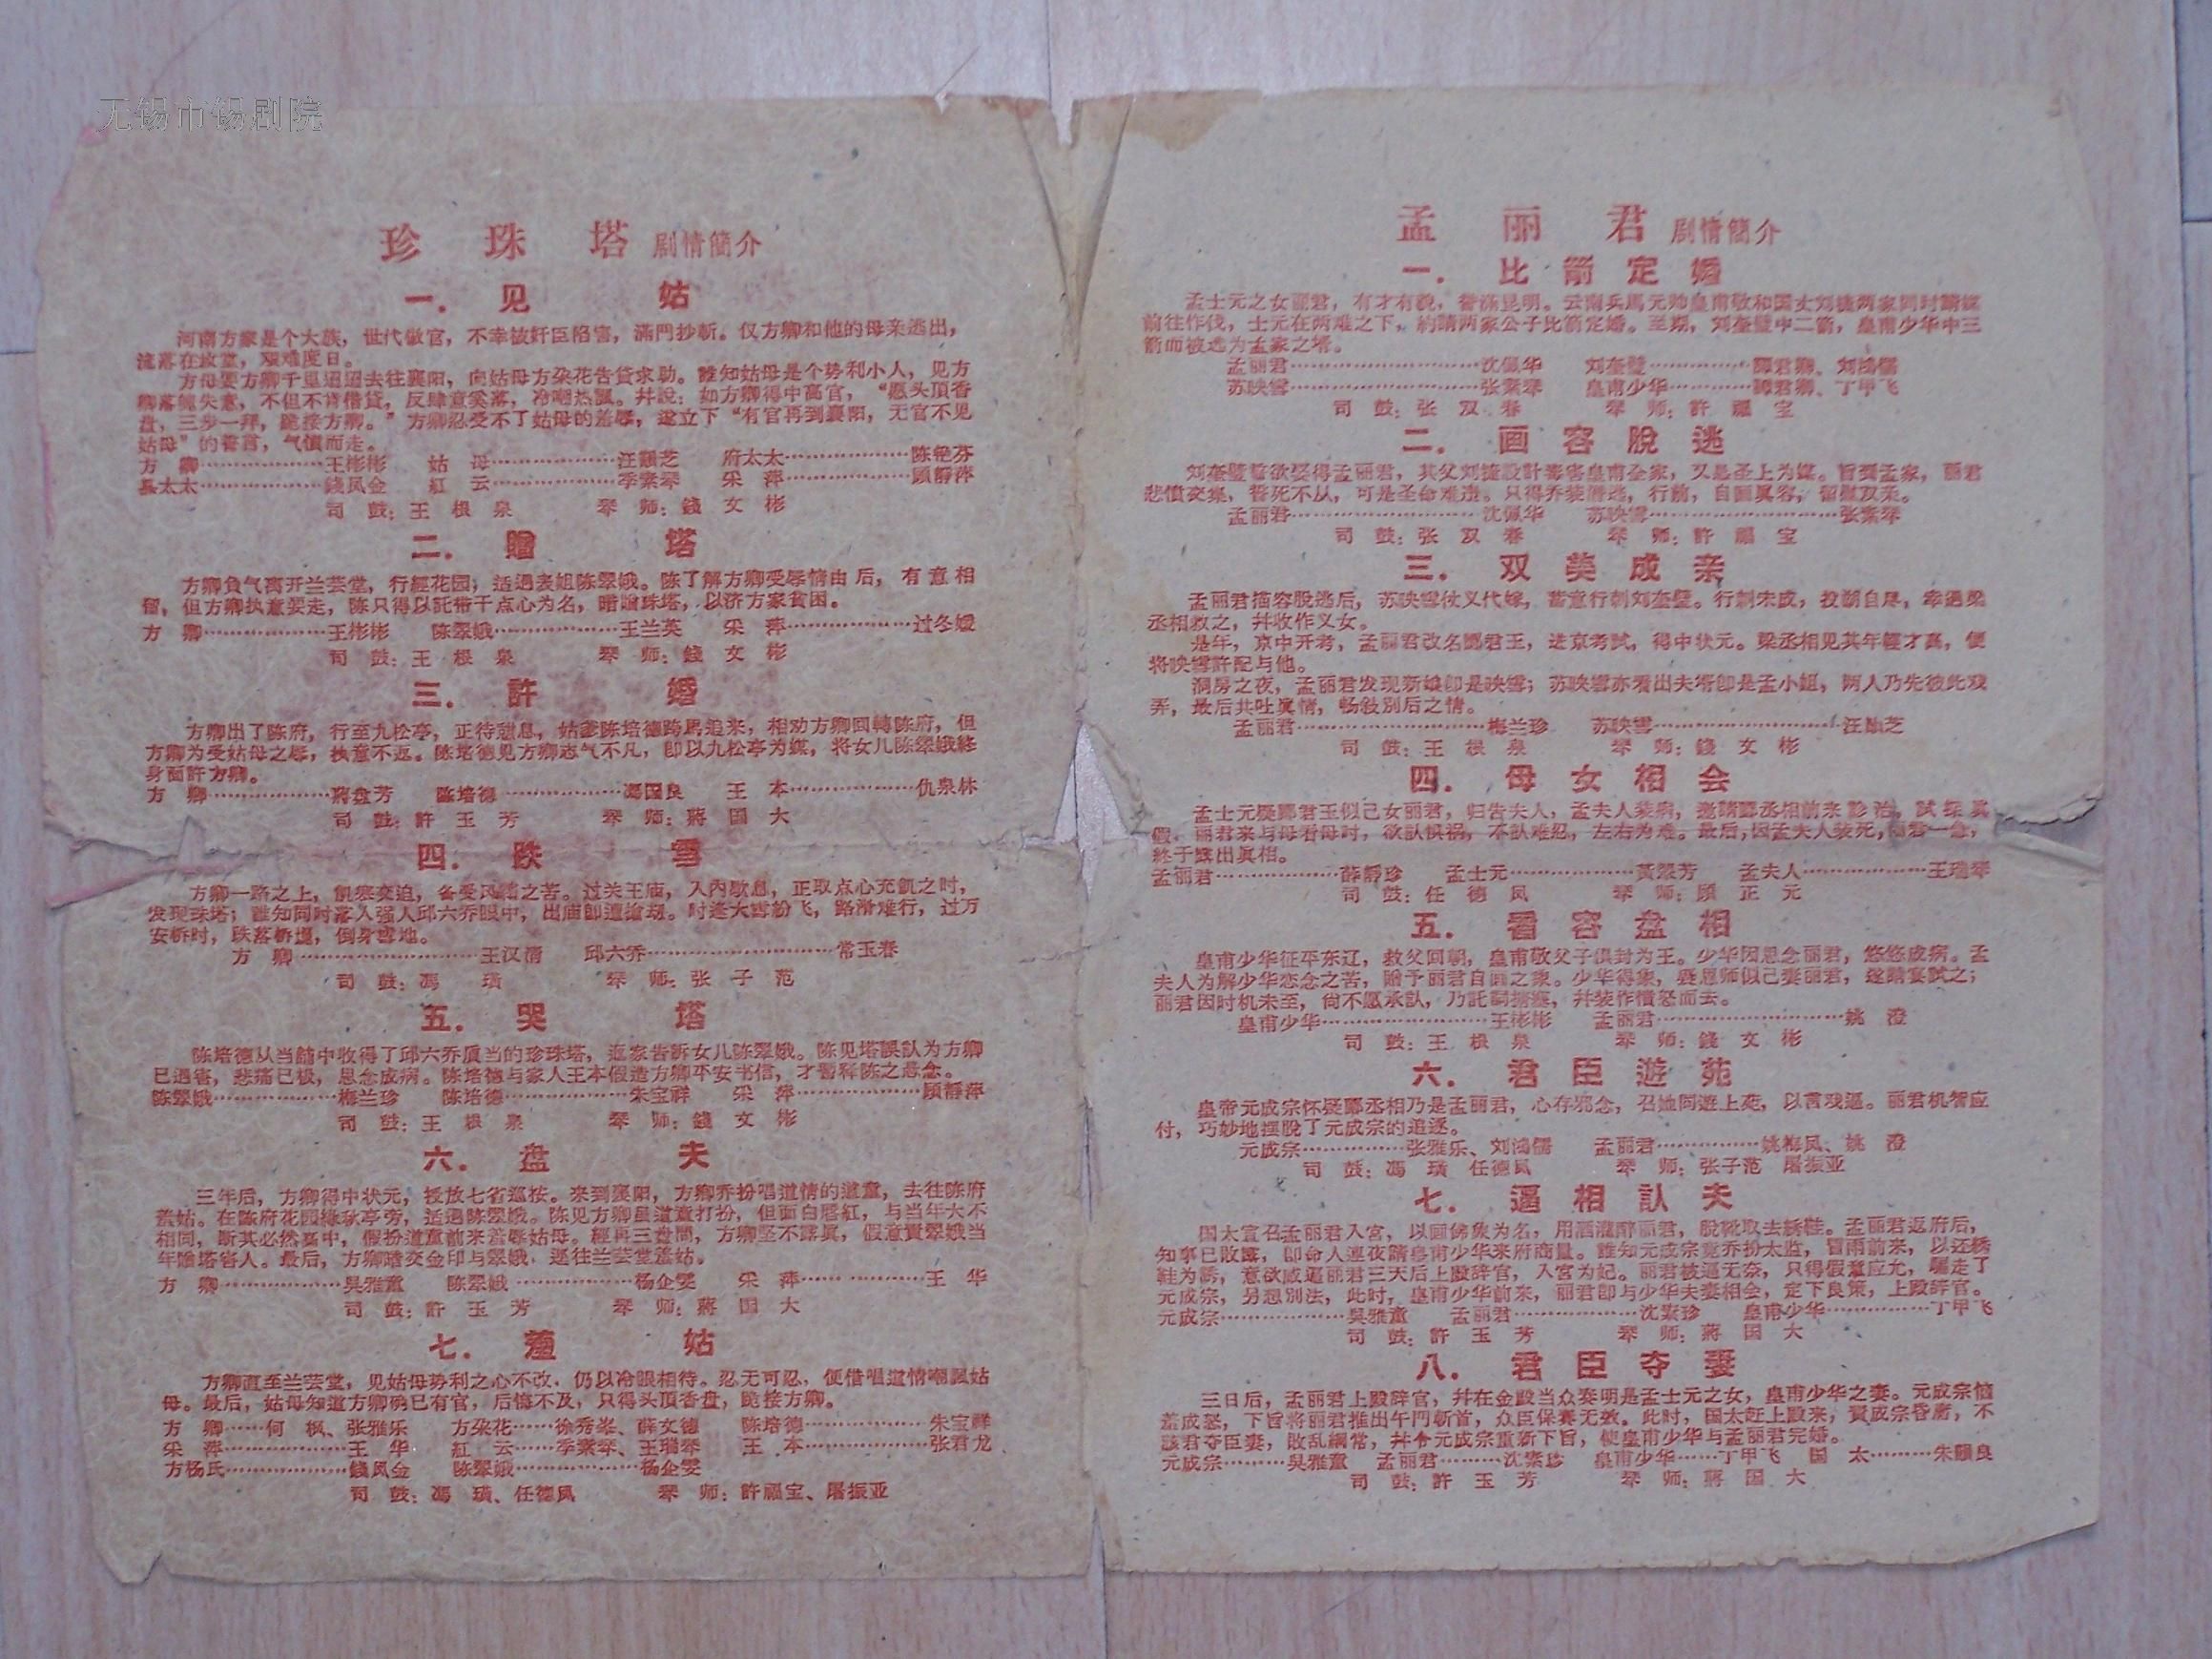 无锡市锡剧院
珍珠塔 剧情簡介
一．见姑
河南方家是个大族，世代做官，不幸被奸臣陷害，滿門抄斬。仅方卿和他的母亲逃出，
流落在坟堂，艰难度日。
方母要方卿千里迢迢去往襄阳，向姑母方朶花告貸求助。誰知姑母是个势利小人，见方
卿落魄失意，不但不肯借貸，反肆意奚落，冷嘲热諷。幷說：如方卿得中高官，“愿头頂香
盘，三步一拜，跪接方卿。”方卿忍受不了姑母的羞辱，遂立下“有官再到襄阳，无官不见
姑母”的誓言，气憤而走。
方　卿…………王彬彬　姑　母…………汪韻芝　府太太…………陈艳芬
县太太…………錢凤金　紅　云…………季素琴　采　萍…………顾靜萍
司　鼓：王　根　泉　　琴　师：錢　文　彬
二．贈塔
方卿負气离开兰芸堂，行經花园，适遇表姐陈翠娥。陈了解方卿受辱情由后，有意相
留，但方卿执意要走，陈只得以託带干点心为名，暗贈珠塔，以济方家貧困。
方　卿…………王彬彬　陈翠娥…………王兰英　采　萍…………过冬嫒
司　鼓：王　根　泉　　琴　师：錢　文　彬
三．許婚
方卿出了陈府，行至九松亭，正待憩息，姑爹陈培德跨馬追来，相劝方卿回轉陈府，但
方卿为受姑母之辱，执意不返。陈培德见方卿志气不凡，卽以九松亭为媒，将女儿陈翠娥終
身面許方卿。
方　卿…………蔣盘芳　陈培德…………馮国良　王　本…………仇泉林
司　鼓：許　玉　芳　　琴　师：蔣　国　大
四．跌雪
方卿一路之上，飢寒交迫，备受风霜之苦。过关王庙，入內歇息，正取点心充飢之时，
发现珠塔；誰知同时落入强人邱六乔眼中，出庙卽遭搶刼。时逢大雪紛飞，路滑难行，过万
安桥时，跌落桥堍，倒身雪地。
方　卿…………王汉清　邱六乔…………常玉春
司　鼓：馮　璜　　琴　师：张　子　范
五．哭塔
陈培德从当舖中收得了邱六乔质当的珍珠塔，返家告訴女儿陈翠娥。陈见塔誤訒为方卿
已遇害，悲痛已极，思念成病。陈培德与家人王本假造方卿平安书信，才暫释陈之悬念。
陈翠娥…………梅兰珍　陈培德…………朱宝祥　采　萍…………顾靜萍
司　鼓：王　根　泉　　琴　师：錢　文　彬
六．盘夫
三年后，方卿得中状元，授放七省巡按。来到襄阳，方卿乔扮唱道情的道童，去往陈府
羞姑。在陈府花园綠秋亭旁，适遇陈翠娥。陈见方卿虽道童打扮，但面白唇紅，与当年大不
相同，断其必然高中，假扮道童前来羞辱姑母。經再三盘問，方卿坚不露眞，假意責翠娥当
年贈塔害人。最后，方卿暗交金印与翠娥，逕往兰芸堂羞姑。
方　卿…………吳雅童　陈翠娥…………杨企雯　采　萍…………王　华
司　鼓：許　玉　芳　　琴　师：蔣　国　大
七．羞姑
方卿直至兰芸堂，见姑母势利之心不改，仍以冷眼相待。忍无可忍，便借唱道情嘲諷姑
母。最后，姑母知道方卿确已有官，后悔不及，只得头頂香盘，跪接方卿。
方　卿……何　枫、张雅乐　方朶花……徐秀峯、薛文德　陈培德…………朱宝祥
采　萍…………王　华　紅　云……季素琴、王瑞琴　王　本…………张君龙
方杨氏…………錢凤金　陈翠娥…………杨企雯
司　鼓：馮　璜、任德凤　　琴　师：許福宝、屠振亚
孟丽君 剧情簡介
一．比箭定婚
孟士元之女丽君，有才有貌，誉滿昆明。云南兵馬元帅皇甫敬和国丈刘捷两家同时請媒
前往作伐，士元在两难之下，約請两家公子比箭定婚。至期，刘奎璧中二箭，皇甫少华中三
箭而被选为孟家之壻。
孟丽君…………沈佩华　刘奎璧…………譚君卿、刘鴻儒
苏映雪…………张素琴　皇甫少华…………譚君卿、丁甲飞
司　鼓：张　双　春　　琴　师：許　福　宝
二．画容脫逃
刘奎璧誓欲娶得孟丽君，其父刘捷設計毒害皇甫全家，又恳圣上为媒。旨到孟家，丽君
悲憤交集，誓死不从，可是圣命难违。只得乔装潛逃，行前，自画眞容，留慰双亲。
孟丽君…………沈佩华　苏映雪…………张素琴
司　鼓：张　双　春　　琴　师：許　福　宝
三．双美成亲
孟丽君描容脫逃后，苏映雪仗义代嫁，蓄意行刺刘奎璧。行刺未成，投湖自尽，幸遇梁
丞相救之，幷收作义女。
是年，京中开考，孟丽君改名酈君玉，进京考試，得中状元。梁丞相见其年輕才高，便
将映雪許配与他。
洞房之夜，孟丽君发现新娘卽是映雪；苏映雪亦看出夫壻卽是孟小姐，两人乃先彼此戏
弄，最后共吐眞情，畅敍別后之情。
孟丽君…………梅兰珍　苏映雪…………汪韻芝
司　鼓：王　根　泉　　琴　师：錢　文　彬
四．母女相会
孟士元疑酈君玉似己女丽君，归告夫人，孟夫人装病，邀請酈丞相前来診治，試探眞
假。丽君来与母看母时，欲訒惧祸，不訒难忍，左右为难。最后，因孟夫人装死，丽君一急，
終于露出眞相。
孟丽君…………薛靜珍　孟士元…………黃翠芳　孟夫人…………王瑞琴
司　鼓：任　德　凤　　琴　师：顾　正　元
五．看容盘相
皇甫少华征平东辽，救父回朝，皇甫敬父子俱封为王。少华因思念丽君，悠悠成病。孟
夫人为解少华恋念之苦，贈予丽君自画之象。少华得象，疑恩师似己妻丽君，遂請宴試之；
丽君因时机未至，尙不愿承訒，乃託詞搪塞，幷装作憤怒而去。
皇甫少华…………王彬彬　孟丽君…………姚　澄
司　鼓：王　根　泉　　琴　师：錢　文　彬
六．君臣遊苑
皇帝元成宗怀疑酈丞相乃是孟丽君，心存邪念，召她同遊上苑，以言戏逼。丽君机智应
付，巧妙地摆脫了元成宗的追逐。
元成宗…………张雅乐、刘鴻儒　孟丽君…………姚梅凤、姚　澄
司　鼓：馮　璜　任德凤　　琴　师：张子范　屠振亚
七．逼相訒夫
国太宣召孟丽君入宮，以画佛象为名，用酒灌醉丽君，脫靴取去綉鞋。孟丽君返府后，
知事已敗露，卽命人連夜請皇甫少华来府商量。誰知元成宗竟乔扮太监，冒雨前来，以还綉
鞋为誘，意欲威逼丽君三天后上殿辞官，入宮为妃。丽君被逼无奈，只得假意应允，騙走了
元成宗，另想別法，此时，皇甫少华前来，丽君卽与少华夫妻相会，定下良策，上殿辞官。
元成宗…………吳雅童　孟丽君…………沈素珍　皇甫少华…………丁甲飞
司　鼓：許　玉　芳　　琴　师：蔣　国　大
八．君臣夺妻
三日后，孟丽君上殿辞官，幷在金殿当众奏明是孟士元之女，皇甫少华之妻。元成宗恼
羞成怒，下旨将丽君推出午門斬首，众臣保奏无效。此时，国太赶上殿来，責成宗昏庸，不
該君夺臣妻，敗乱綱常，幷令元成宗重新下旨，使皇甫少华与孟丽君完婚。
元成宗………吳雅童　孟丽君………沈素珍　皇甫少华……丁甲飞　国　太………朱韻良
司　鼓：許　玉　芳　　琴　师：蔣　国　大